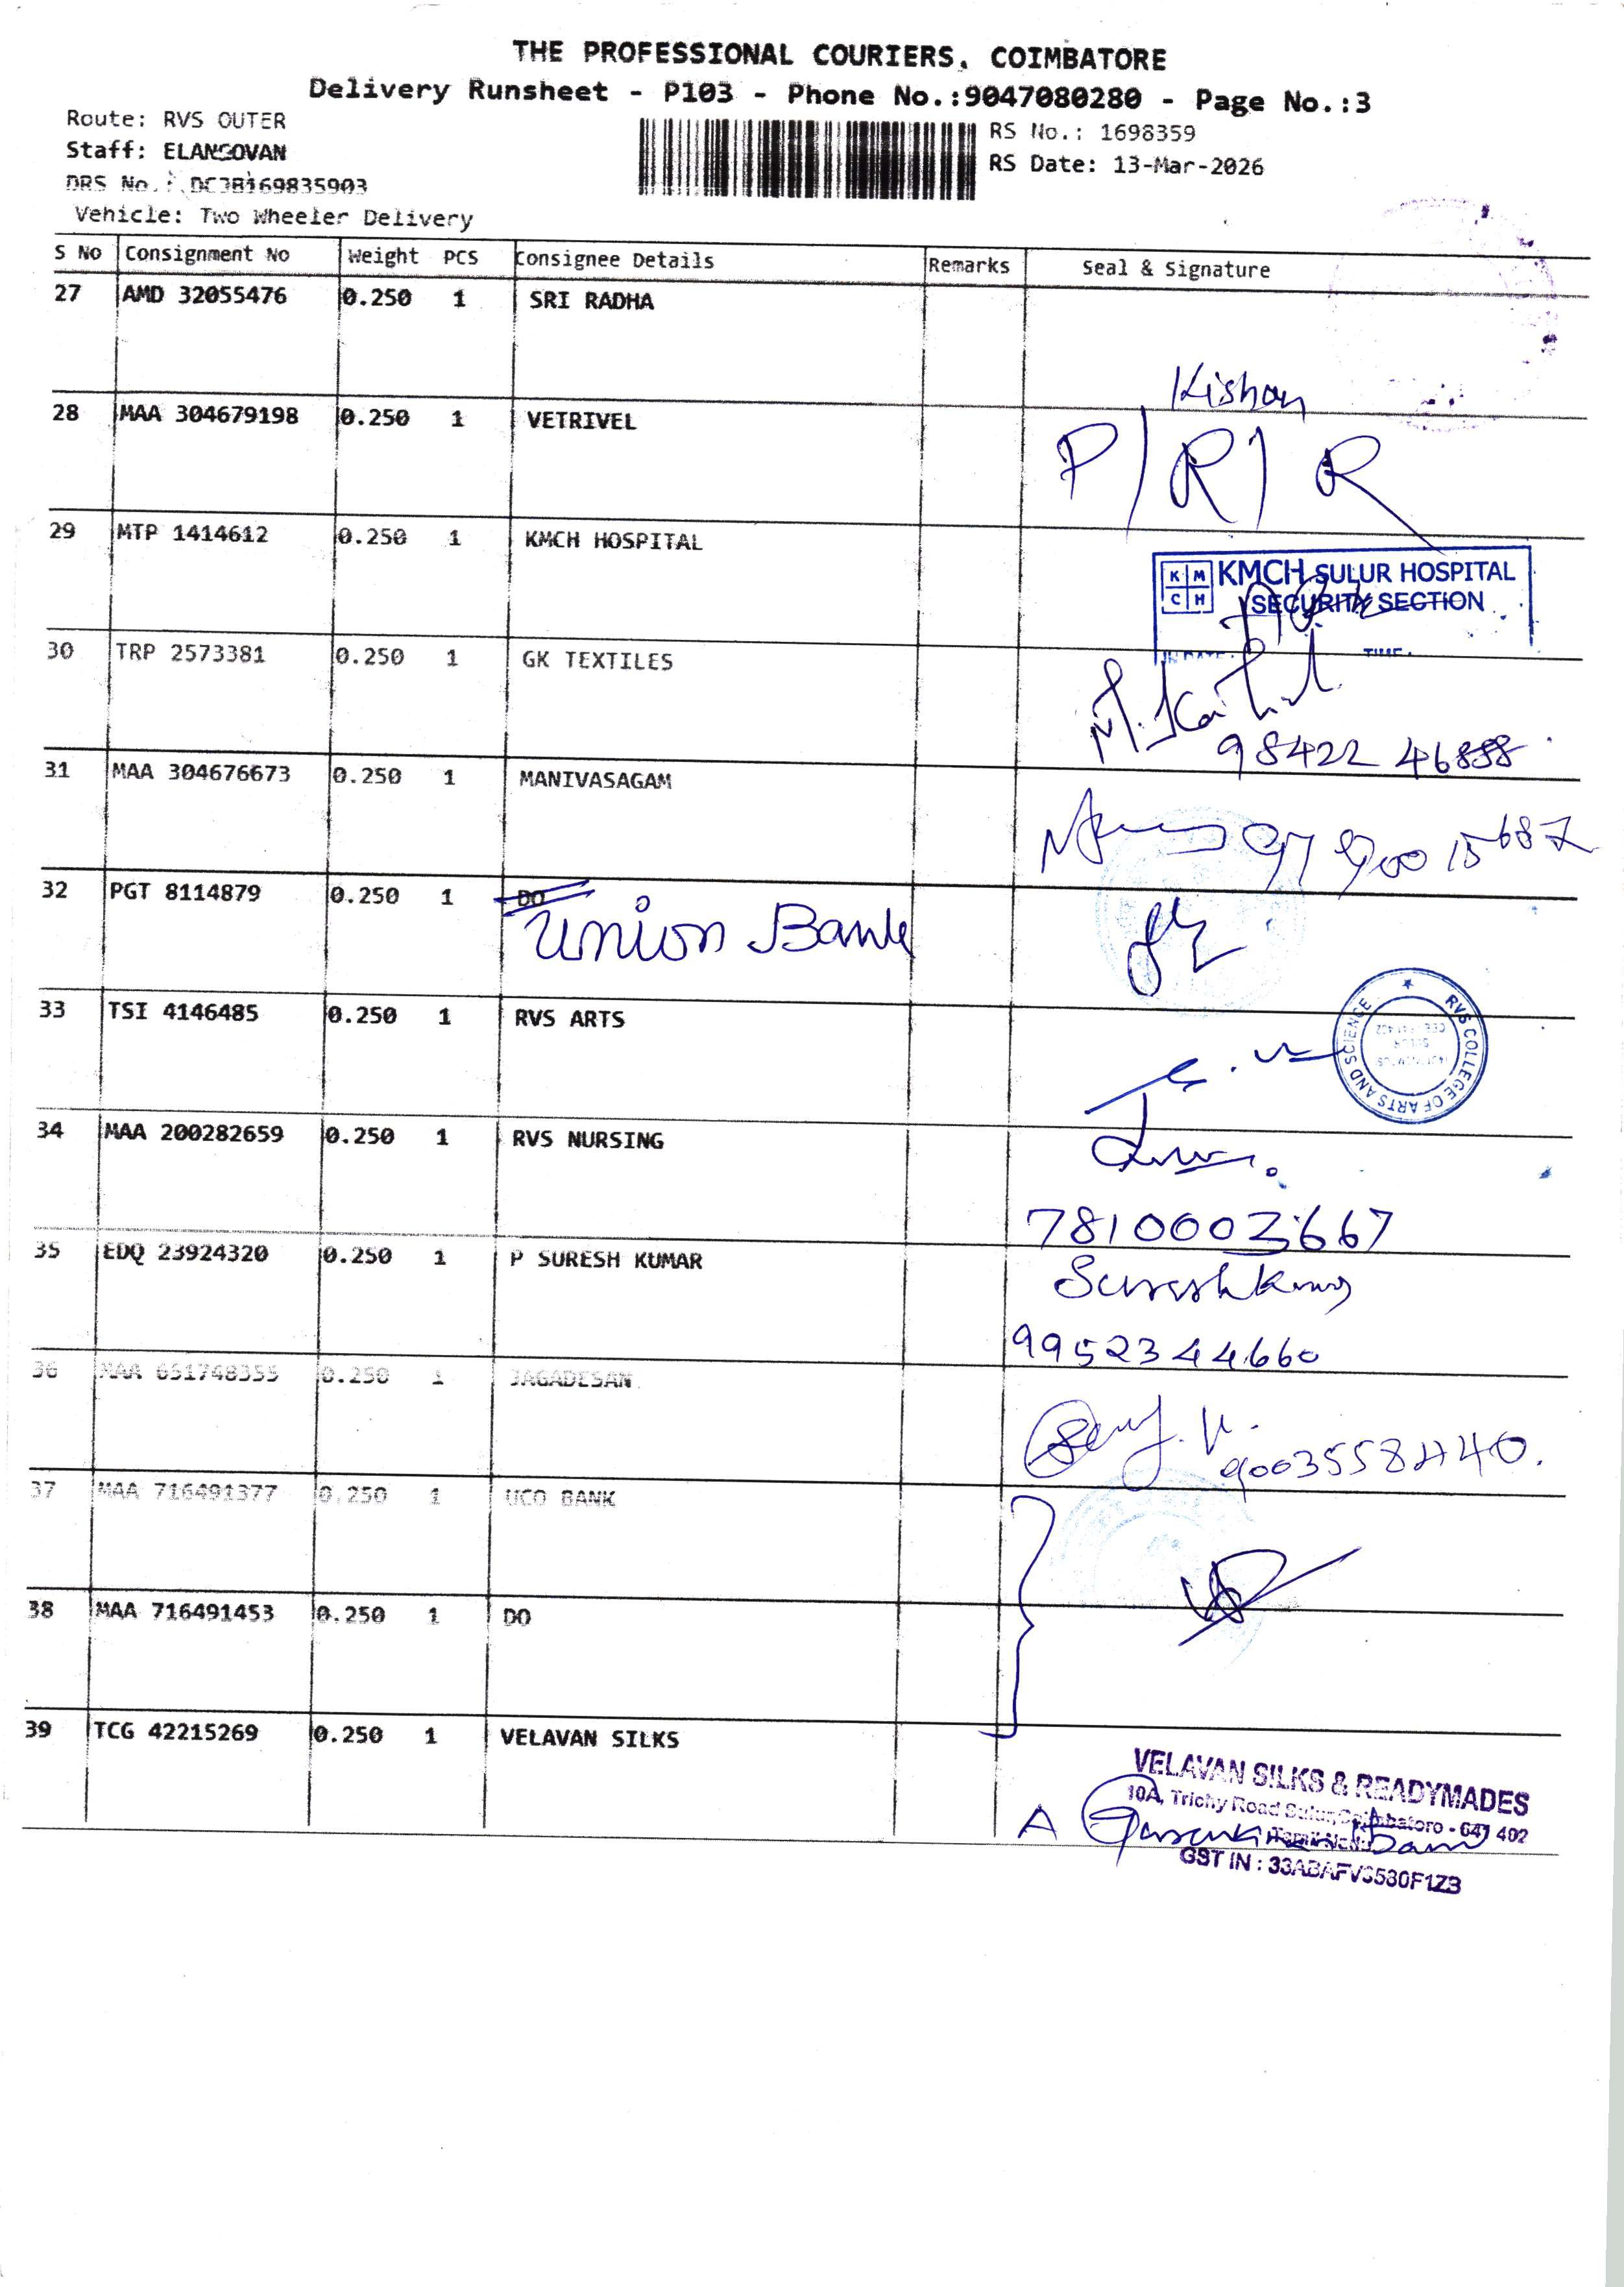 THE PROFESSIONAL COURIERS, COIMBATORE
Delivery Runsheet - P103 - Phone No.:9047080280 - Page No.:3
Route: RVS OUTER
Staff: ELANGOVAN
DRS No.: DCJB169835903
Vehicle: Two Wheeler Delivery
RS No.: 1698359
RS Date: 13-Mar-2026
S No Consignment No Weight PCS Consignee Details Remarks Seal & Signature
27 AMD 32055476 0.250 1 SRI RADHA
Kishan
28 MAA 304679198 0.250 1 VETRIVEL
P/R/R
29 MTP 1414612 0.250 1 KMCH HOSPITAL
K M C H KMCH SULUR HOSPITAL
SECURITY SECTION
30 TRP 2573381 0.250 1 GK TEXTILES
98422 46888
31 MAA 304676673 0.250 1 MANIVASAGAM
32 PGT 8114879 0.250 1 DO
Union Bank
33 TSI 4146485 0.250 1 RVS ARTS
RVS COLLEGE OF ARTS AND SCIENCE
34 MAA 200282659 0.250 1 RVS NURSING
7810003667
35 EDQ 23924320 0.250 1 P SURESH KUMAR
Sureshkumar
9952344660
36 MAA 651748355 0.250 1 JAGADESAN
37 MAA 716491377 0.250 1 UCO BANK
38 MAA 716491453 0.250 1 DO
39 TCG 42215269 0.250 1 VELAVAN SILKS
VELAVAN SILKS & READYMADES
10A, Trichy Road Sulur Coimbatore - 641 402
Tamil Nadu
GST IN :